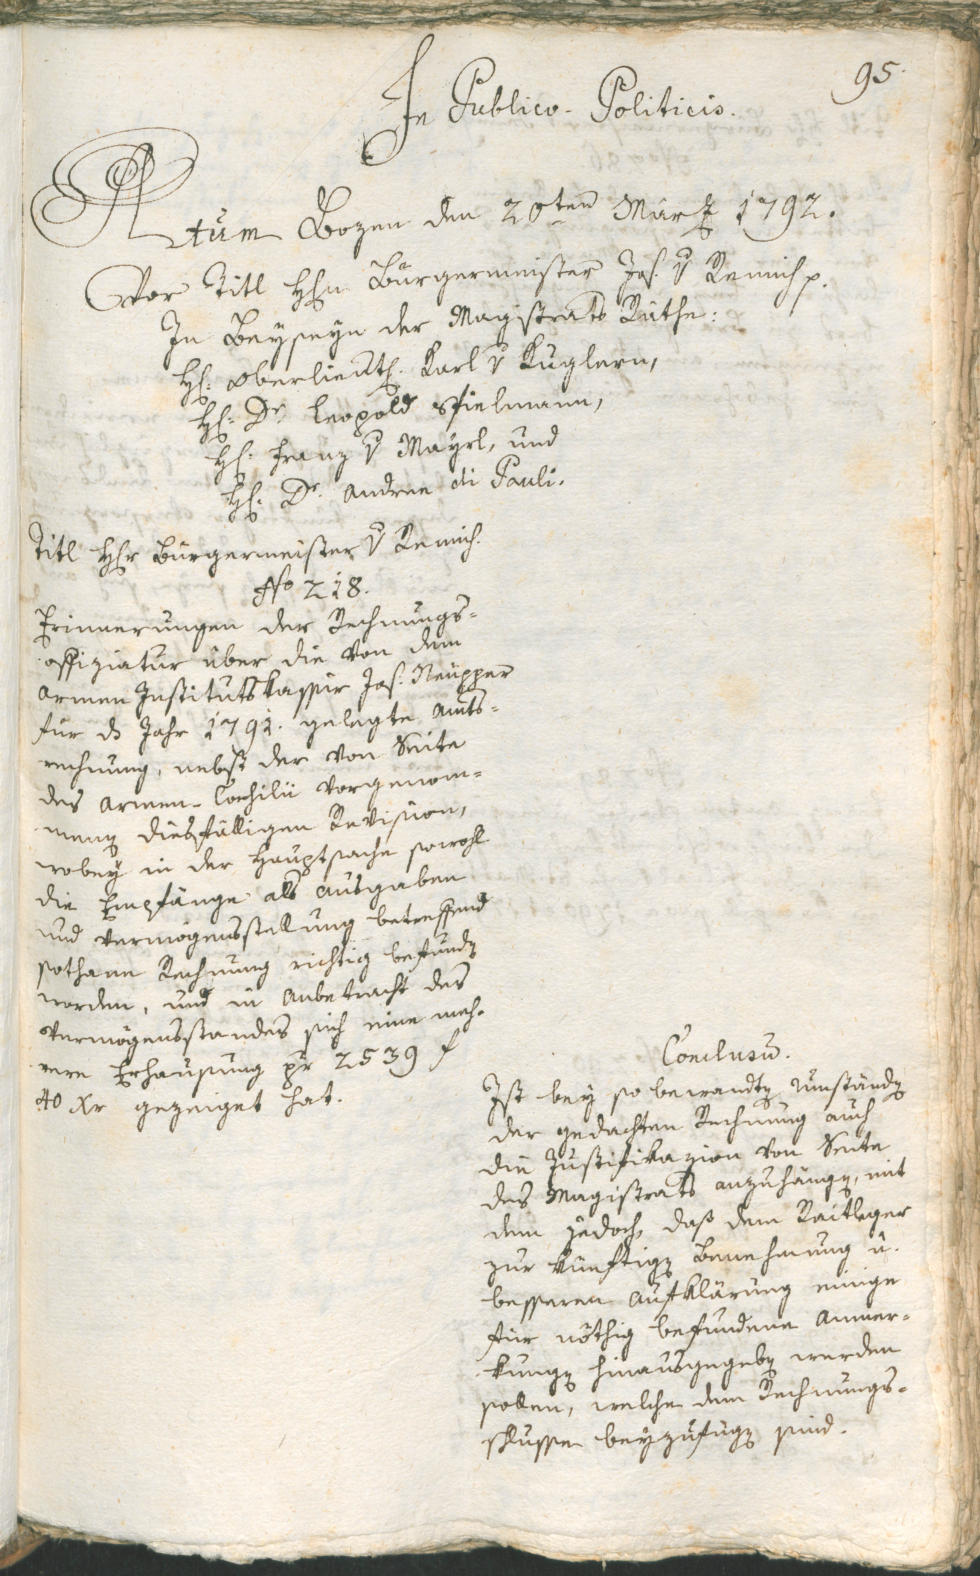 95.
In Publico-Politicis.
Actum Bozen den 20ten März 1792.
Vor Titl Hhn Bürgermeister Jos. v Remich p.
In Beyseyn der Magistrats Räthe:
HH. Oberlieut. Karl v Kuglern,
HH. Dr. Leopold Spielmann,
HH. Franz v Mayrl, und
HH. Dr. Andree di Pauli.
Titl Hhr Bürgermeister v Remich.
No 218.
Erinnerungen der Rechnungs-
offiziatur über die von dem
armen Institutskassier Jos. Neupper
für ds Jahr 1791. gelegte Amts-
rechnung, nebst der von Seite
des Armen-Consilii vorgenom-
menen diesfälligen Revision,
wobey in der Hauptsache sowohl
die Empfänge als Ausgaben
und Vermögensstellung betreffend
sothane Rechnung richtig befunden
worden, und in Anbetracht des
Vermögensstandes sich eine meh-
rere Erhausung pr 2539 f
40 Xr gezeiget hat.
Conclusu.
Ist bey so bewandten Umständen
der gedachten Rechnung auch
die Justifikazion von Seite
des Magistrats anzuhängen, mit
dem jedoch, daß dem Raitleger
zur künftigen Benehmung u.
besseren Aufklärung einige
für nöthig befundene Anmer-
kungen hinausgegeben werden
sollen, welche dem Rechnungs-
schlusse beyzufügen sind.